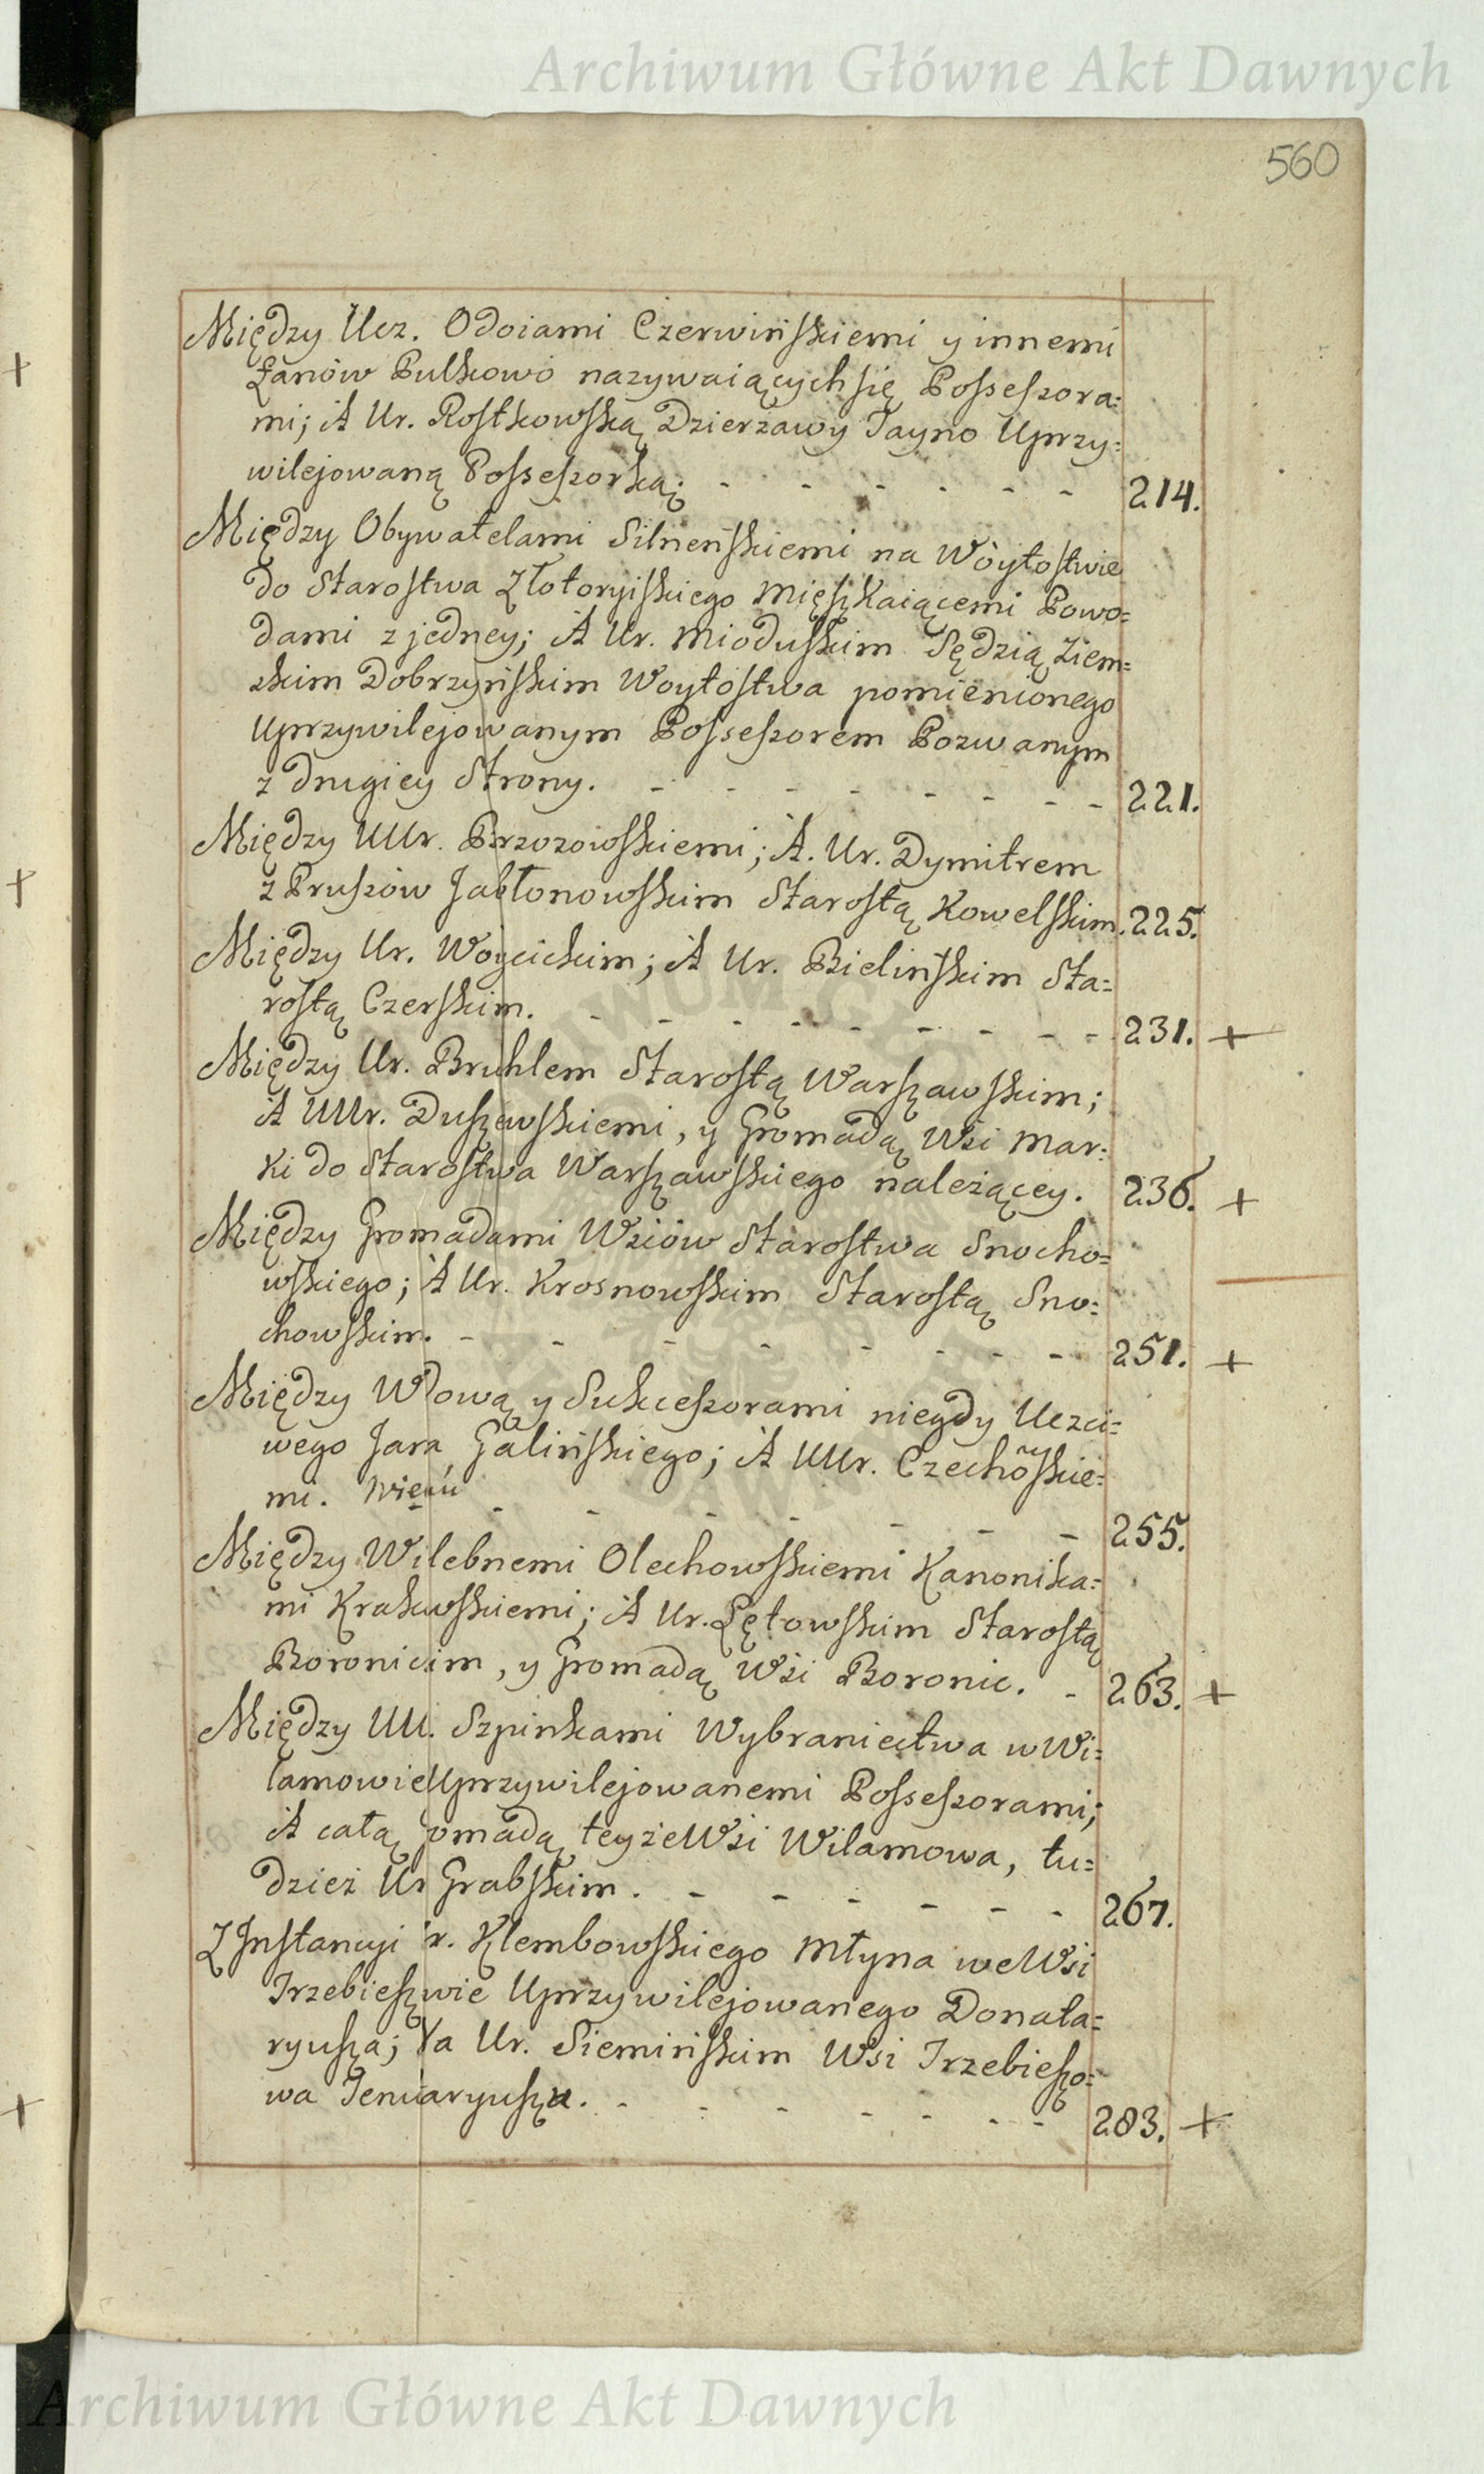 Archiwum Główne Akt Dawnych
560
Między Ucz. Odoiami Czerwińskiemi y innemi
Łanów Pulkowo nazywaiących się Possessora=
mi; A Ur. Rostkowską Dzierzawy Tayno Uprzy=
wilejowaną Possessorką; - - - - - - 214.
Między Obywatelami Silneńskiemi na Wóytostwie
do Starostwa Złotoryiskiego Mięszkaiącemi Powo=
dami z jedney; A Ur. Mioduskim Sędzią Ziem=
skim Dobrzyńskim Woytostwa pomienionego
Uprzywilejowanym Possessorem Pozwanym
z drugiey Strony. - - - - - - - 221.
Między UUr. Brzozowskiemi; A. Ur. Dymitrem
z Prussów Jabłonowskim Starostą Kowelskim. 225.
Między Ur. Wóycickim; A Ur. Bielińskim Sta=
rostą Czerskim. - - - - - - - - - 231. +
Między Ur. Bruhlem Starostą Warszawskim;
A UUr. Duszewskiemi, y Gromadą Wsi Mar=
ki do Starostwa Warszawskiego należącey. 236. +
Między Gromadami Wsiów Starostwa Snocho=
wskiego; A Ur. Krosnowskim Starostą Sno=
chowskim. - - - - - - - - 251. +
Między Wdową y Sukcessorami niegdy Uczci=
wego Jana Galińskiego; A UUr. Czechõskie=
mi. - - - - - - - 255.
Między Wilebnemi Olechowskiemi Kanonika=
mi Krakowskiemi; A Ur. Łętowskim Starostą
Boronicim, y Gromadą Wsi Boronic. - 263. +
Między UU. Szpinkami Wybraniectwa w Wi=
lamowie Uprzywilejowanemi Possessorami;
A całą omadą teyże Wsi Wilamowa, tu=
dzież Ur Grabskim. - - - - - - 267.
Z Instancyi r. Klembowskiego Młyna we Wsi
Trzebieszwie Uprzywilejowanego Donata=
ryusza; Va Ur. Siemińskim Wsi Trzebieszo=
wa Tenutaryusza. - - - - - - - 283. +
Archiwum Główne Akt Dawnych